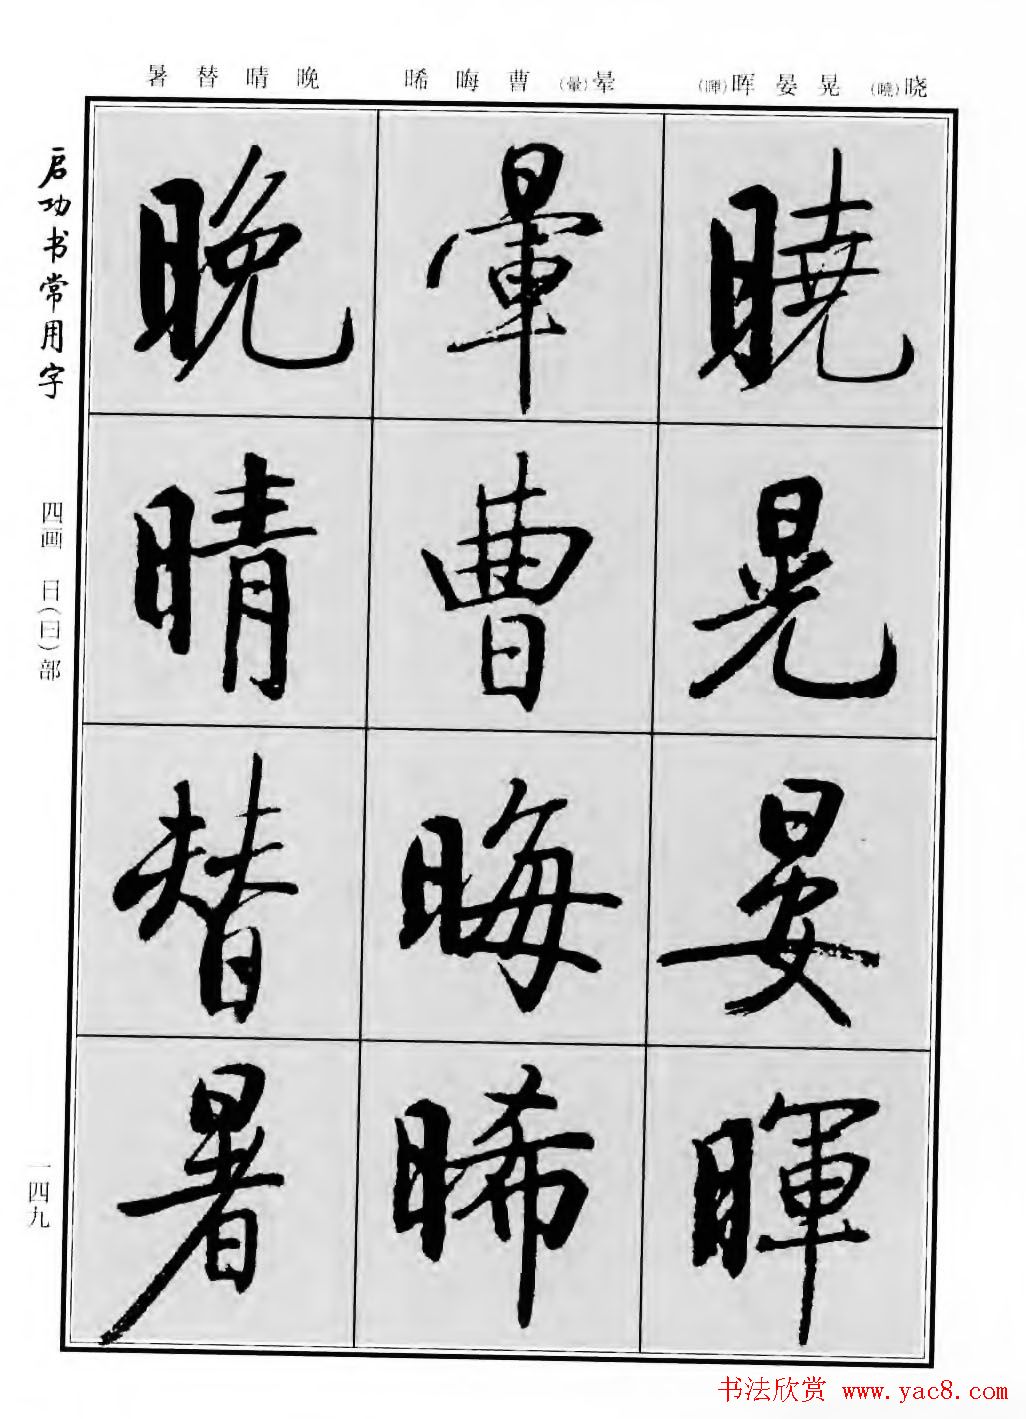 晓(曉)晃晏晖(暉)
晕(暈)曹晦晞
晚晴替暑
曉晃晏暉
暈曹晦晞
晚晴替暑
启功书常用字
四画 日(曰)部
一四九
书法欣赏 www.yac8.com